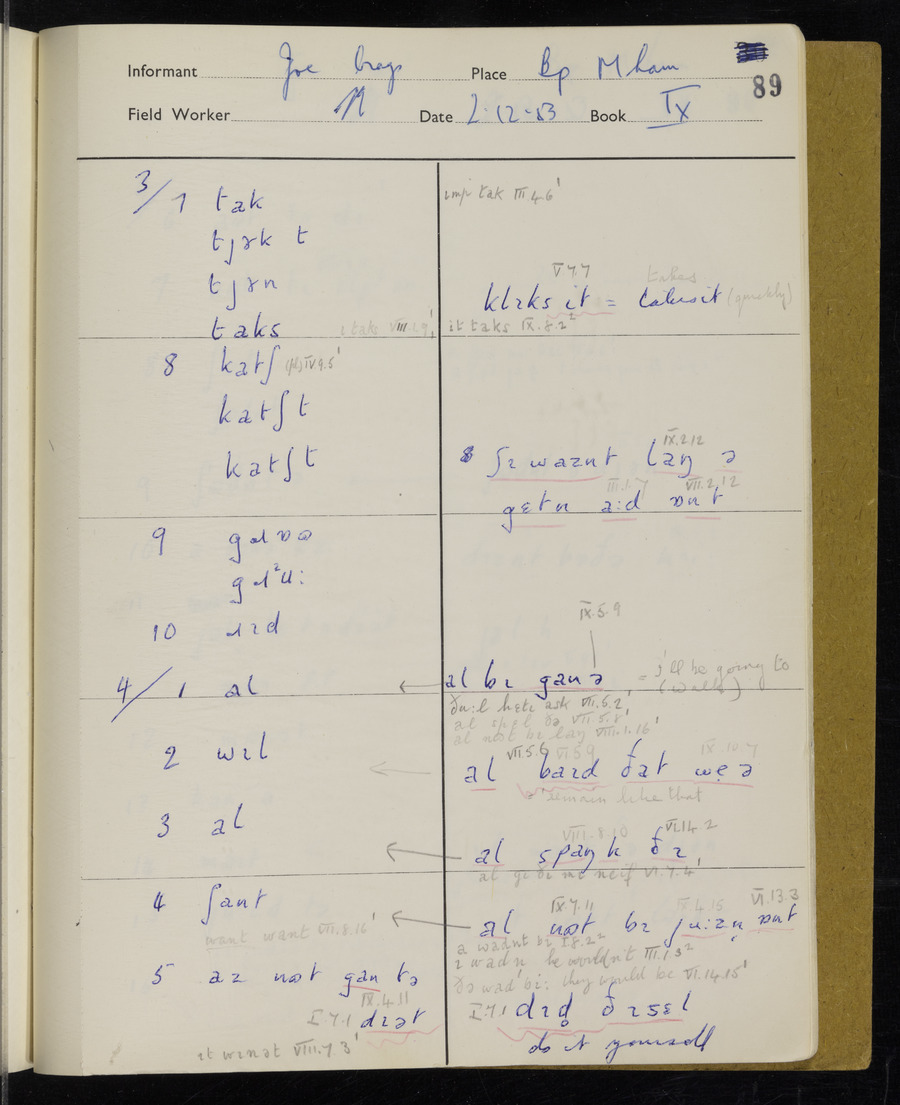 Informant Joe Place Bp M ham
89
Field Worker N Date 2.12.53 Book IX
3/1 tak
imp tak III.4.6¹
tjɤk t
V.7.7
takes
tjɤn
klɪks it = (quickly)
taks
ɪ taks VIII.1.9¹
it taks IX.8.2²
8 katʃ (pl) IV.9.5¹
katʃt
katʃt
IX.2.12
8 ʃɪ waznt laŋ ə
III.1.7 VII.2.12
gɛtn a:d ɒnt
9
10 ɹɪd
IX.5.9
4/1 al
al bɪ gan ə = I'll be going to (walk)
ask VII.6.2¹
al spel ðə VII.5.8¹
al nɒt bɪ laŋ VIII.1.16¹
2 wɪl
VII.5.6 VI.5.9 IX.10.7
al baɪd ðat weə
= remain like that
3 al
VIII.8.10 VI.14.2
al spaŋk ðɪ
al gɪ ðɪ VI.7.4¹
4 ʃant
IX.7.11 IX.4.15 VI.13.3
al nɒt bɪ ju:zn ɒnt
want want VIII.8.16¹
a wadnt bɪ I.8.2²
ɪ wadn he wouldn't III.13²
5 az nɒt gan tə
ðə wad bi: they would be VI.14.15¹
IX.4.11
I.7.1 dɪət
I.7.1 dɪd ðɪsɛl
do it yourself
VIII.7.3¹